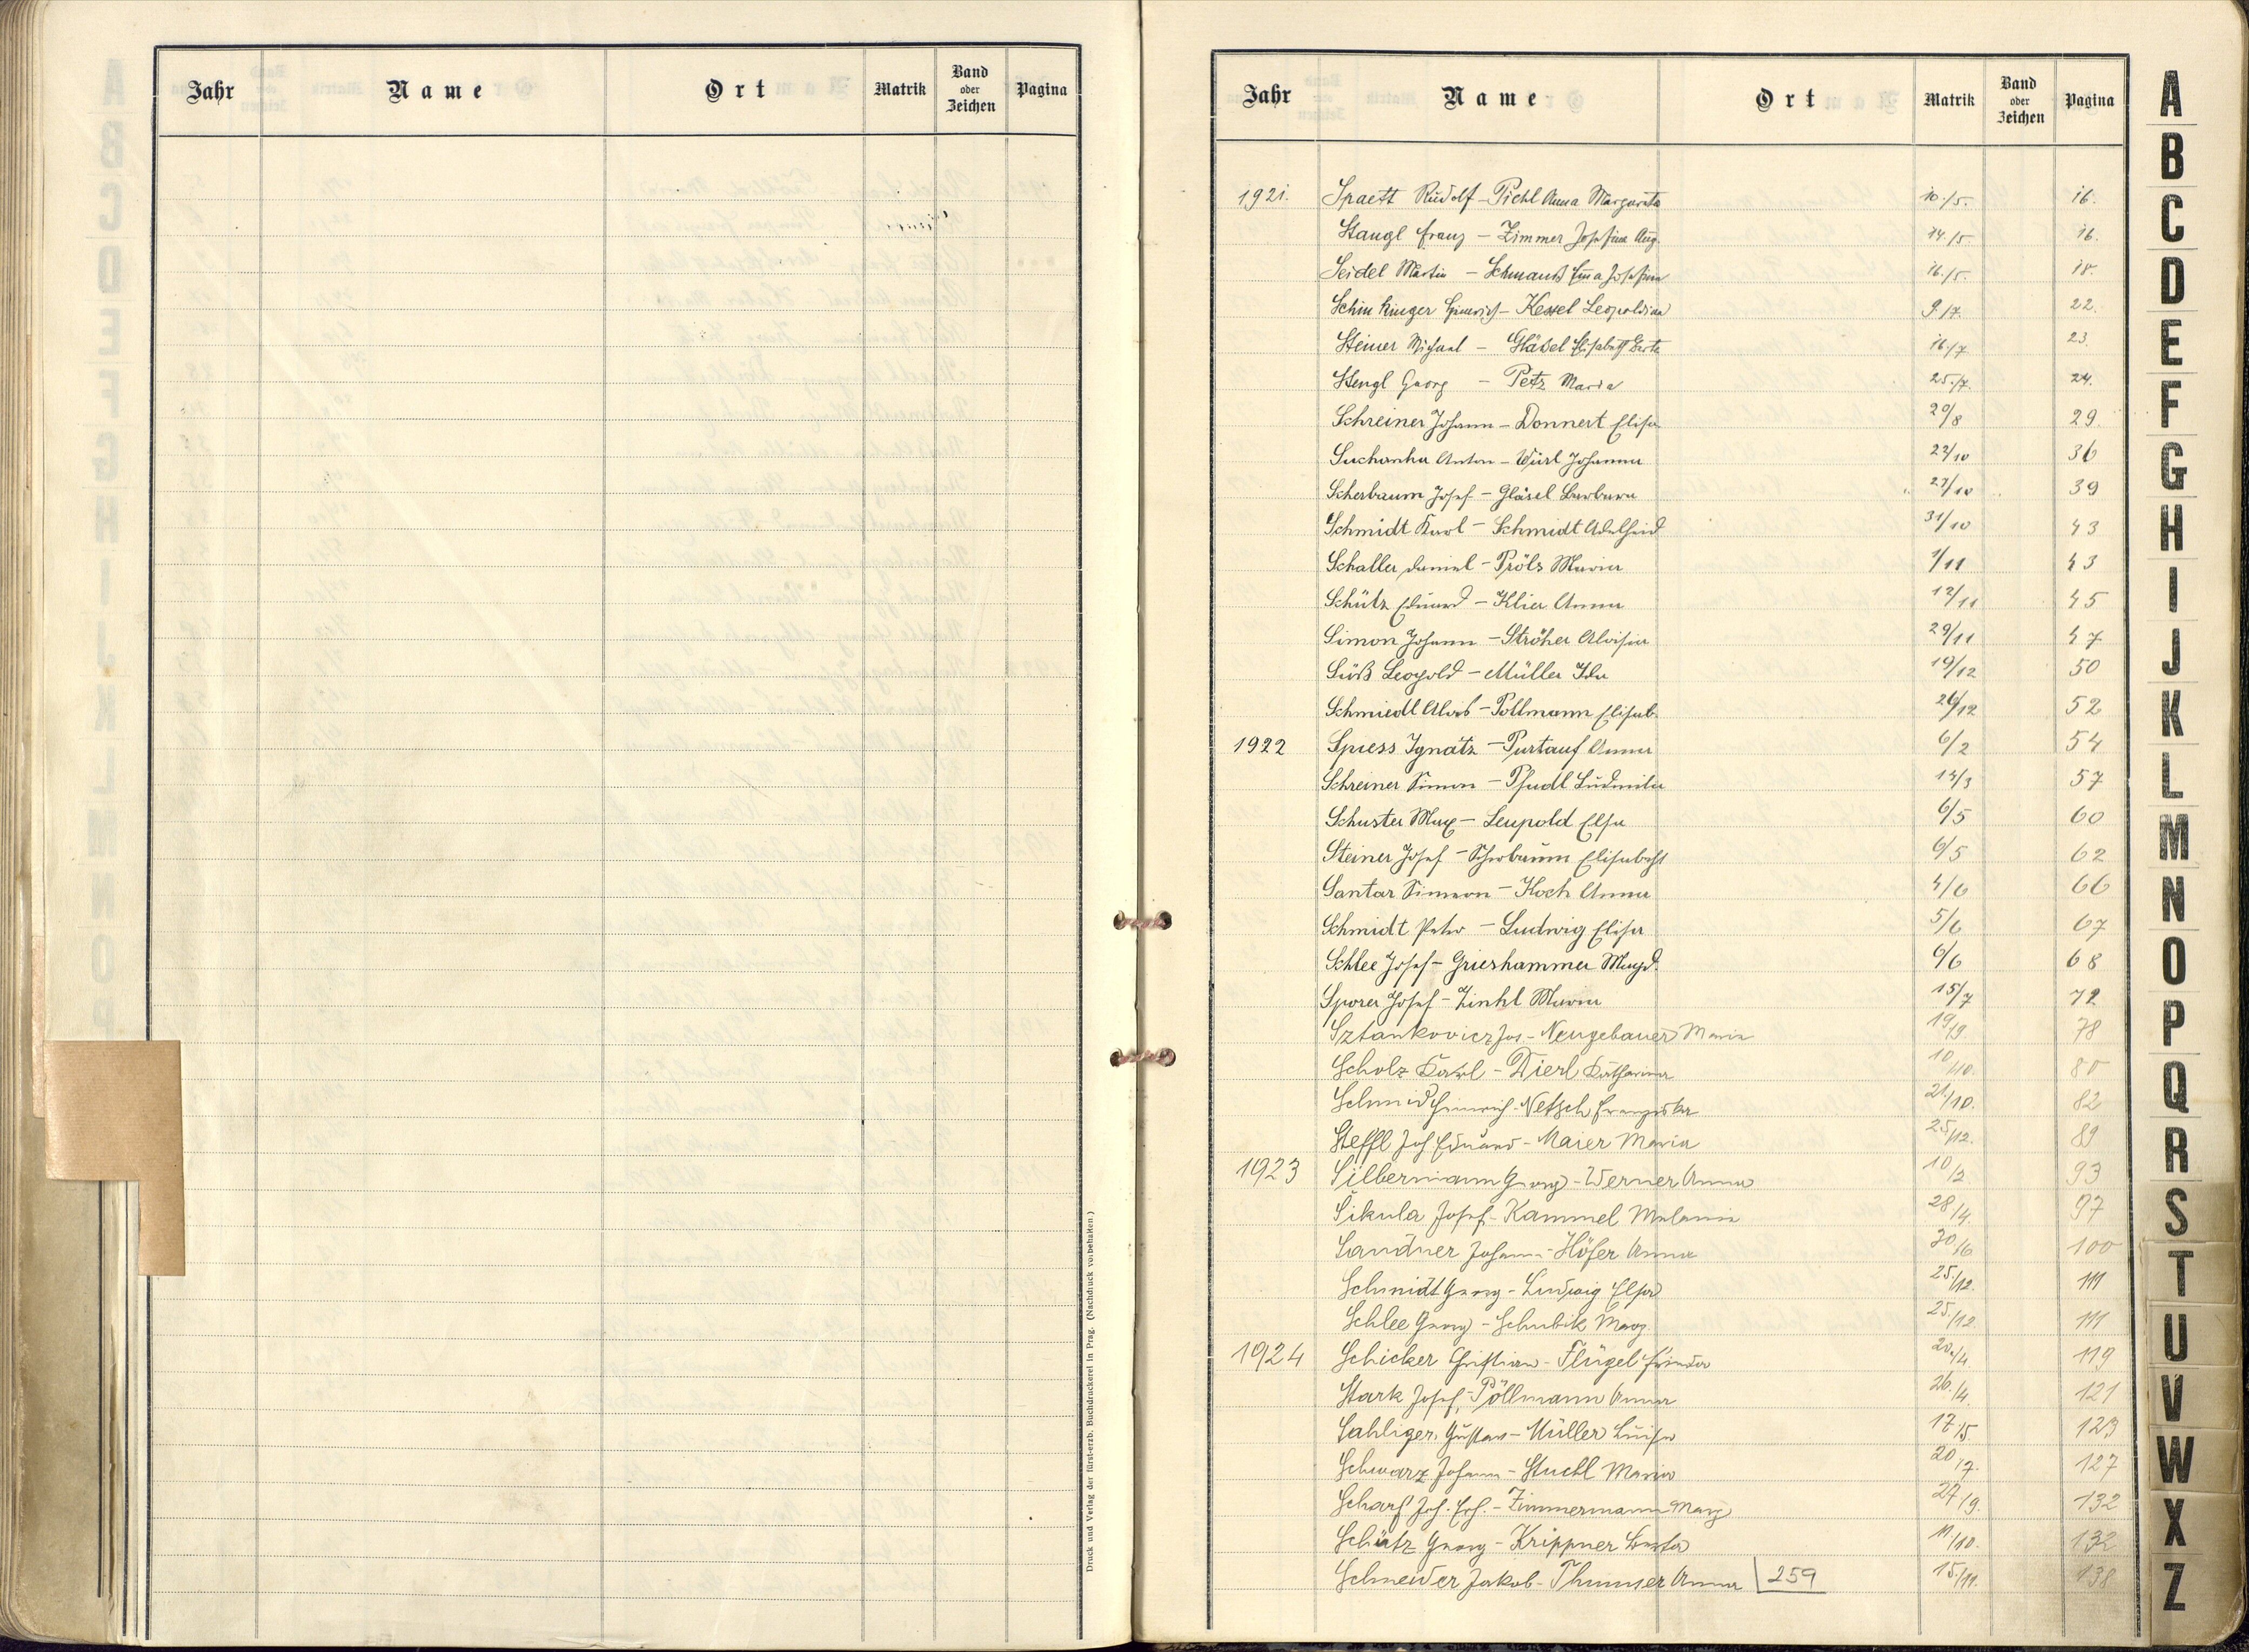 Jahr Name Ort Matrik Band oder Zeichen Pagina
Druck und Verlag der fürst-erzb. Buchdruckerei in Prag. (Nachdruck vorbehalten.)
Jahr Name Ort Matrik Band oder Zeichen Pagina
1921. Spaett Rudolf - Pichl Anna Margareta 10./5. 16.
Stangl Franz - Zimmer Josefine Aug. 14./5. 16.
Seidel Martin - Schmauß Emma Josefine 16./5. 18.
Heinrich - Kessel Leopoldine 9./7. 22.
Steiner Michael - Gläßel Elisabeth Berta 16./7 23.
Stengl Georg - Petz Maria 25./7. 24.
Schreiner Johann - Donnert Elise 20/8 29.
Suchanka Anton - Würl Johanna 22/10 36
Scherbaum Josef - Gläsel Barbara 27/10 39
Schmidt Karl - Schmidt Adelheid 31/10 43
Schaller Daniel - Pröls Maria 1/11 43
Schütz Eduard - Klier Anna 12/11 45
Simon Johann - Ströher Aloisia 29/11 47
Süß Leopold - Müller Ida 19/12 50
Schmiedl Alois - Pöllmann Elisab. 26/12 52
1922 Spiess Ignatz - Purtauf Anna 6/2 54
Schreiner Simon - Pfudl Ludmila 14/3 57
Schuster Max - Leupold Elsa 6/5 60
Steiner Josef - Scherbaum Elisabeth 6/5 62
Santar Simeon - Koch Anna 4/6 66
Schmidt Peter - Ludwig Elisa 5/6 67
Schlee Josef - Grieshammer Magd. 6/6 68
Sporer Josef - Zinkl Maria 15/7 72
Sztankovicz Jos. - Neugebauer Maria 19/9. 78
Scholz Karl - Dierl Katharina 10/10. 80
Schmid Heinrich - Netsch Franziska 21/10. 82
Steffl Jos Eduard - Maier Maria 25/12. 89
1923 Silbermann Georg - Werner Anna 10/2 93
Sikula Josef - Kammel Melanie 28/4. 97
Sandner Johann - Höfer Anna 30/6 100
Schmidt Georg - Ludwig Elsa 25./12. 111
Schlee Georg - Schubik Marg. 25./12 111
1924 Schicker Christian - Flügel Frieda 20./4 119
Stark Josef - Pöllmann Anna 26./4. 121
Sahliger Gustav - Müller Luise 17/5 123
Schwarz Johann - Stuchl Maria 20/7. 127
Scharf Joh. - Zimmermann Marg 27/9. 132
Schätz Georg - Krippner Berta 11/10. 132
Schneider Jakob - Thumser Anna 259 15./11. 138
A
B
C
D
E
F
G
H
I
J
K
L
M
N
O
P
Q
R
S
T
U
V
W
X
Z